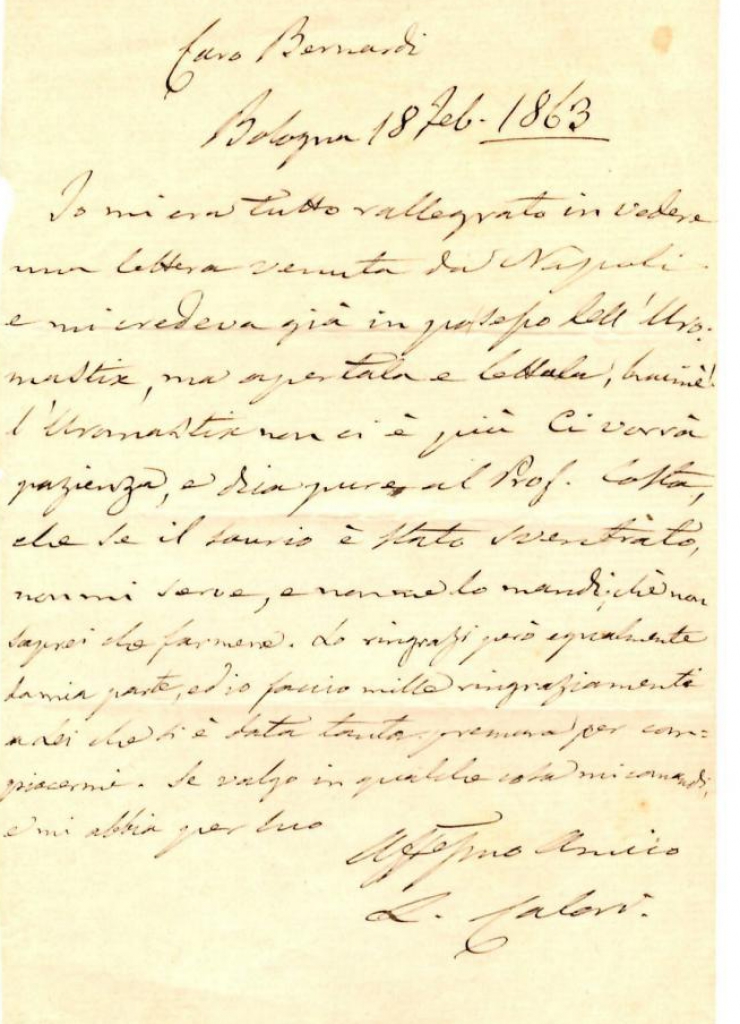 Caro Bernardi
Bologna 18 Feb. 1863
Io mi era tutto rallegrato in vedere
una lettera venuta da Napoli
e mi credeva già in possesso dell'Uro-
mastix, ma apertala e lettala, haimè!
l'Uromastix non ci è più Ci vorrà
pazienza, e dica pure al Prof. Costa,
che se il saurio è stato sventrato,
non mi serve, e non me lo mandi, chè non
saprei che farmene. Lo ringrazi però egualmente
da mia parte, ed io faccio mille ringraziamenti
a Lei che si è data tanta premura per com=
piacermi. Se valgo in qualche cosa mi comandi,
e mi abbia per suo
Affessmo Amico
L. Calori.